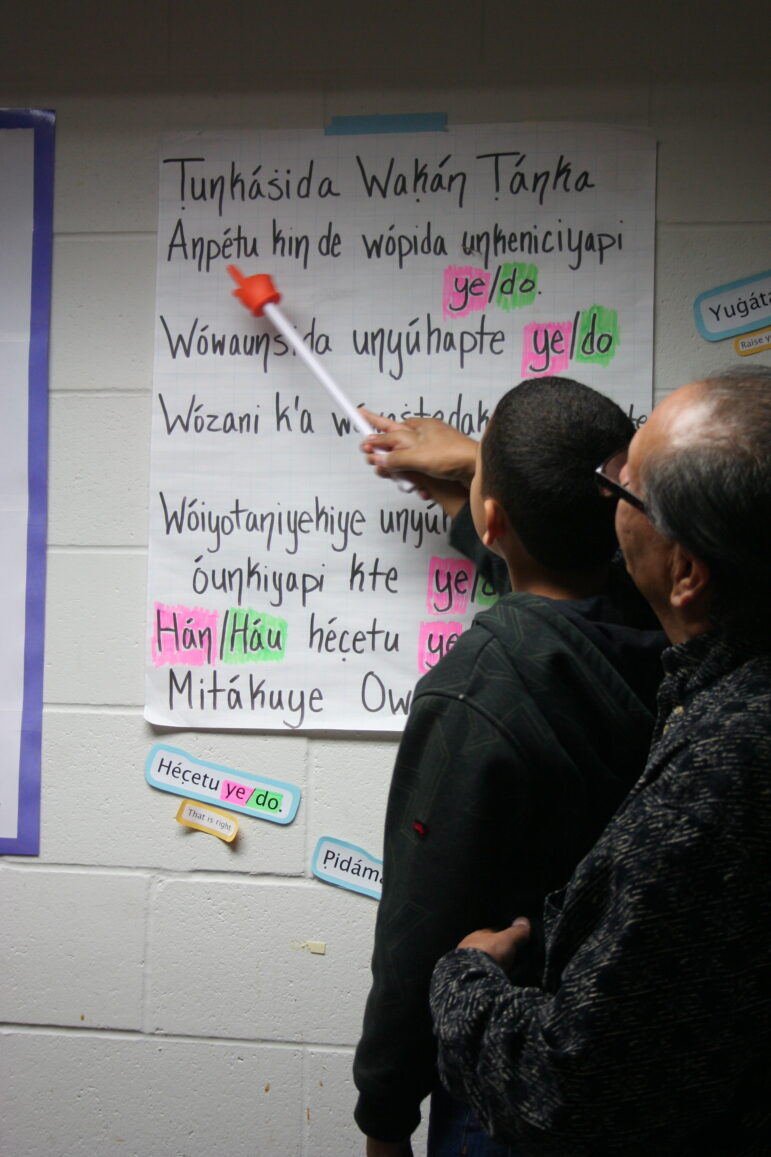 Ṭuƞkáṡida Waḳáƞ Ṭáƞka
Aƞpétu kiƞ de wópida uƞkeniciyapi
ye/do.
Wówauƞṡida uƞyúhapte ye/do
Wózani k'a
Wóiyotaƞiyekiye
óuƞkiyapi kte ye/
Háƞ/Háu héc̣etu ye
Mitákuye
Yuġáta
Raise
Héc̣etu ye/do.
That is right